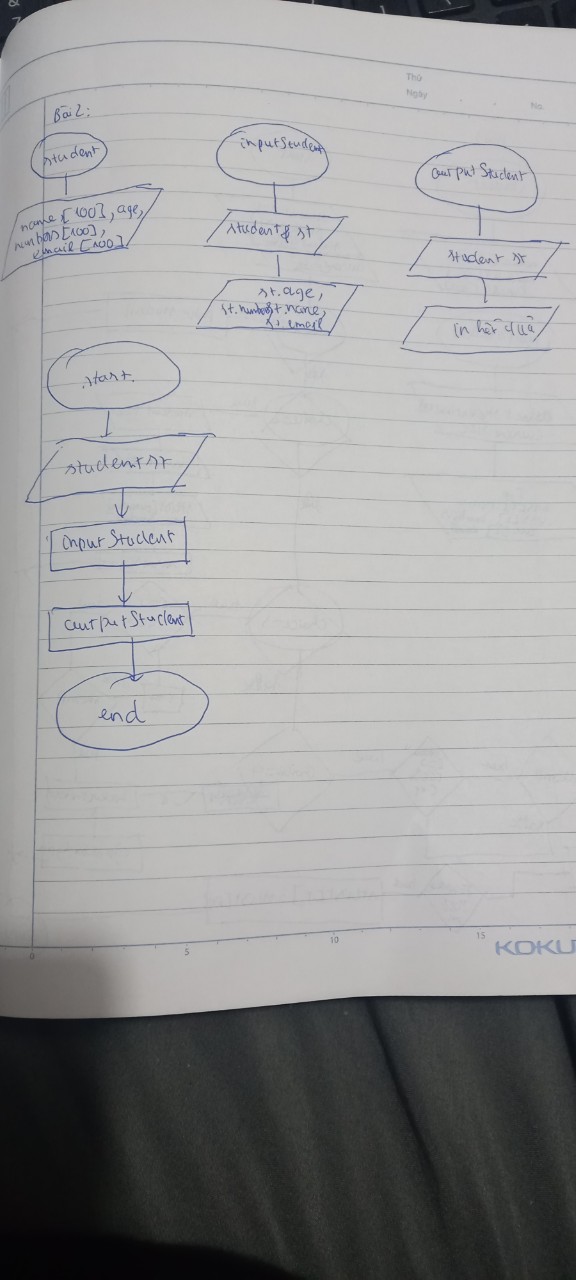 Thứ
Ngày
No
Bài 2:
student
name [100], age,
numbers [100],
email [100]
inputStudent
student & st
st.age,
st.number, st.name,
st.email
outputStudent
student st
in kết quả
start
student st
inputStudent
outputStudent
end
0
5
10
15
KOKU